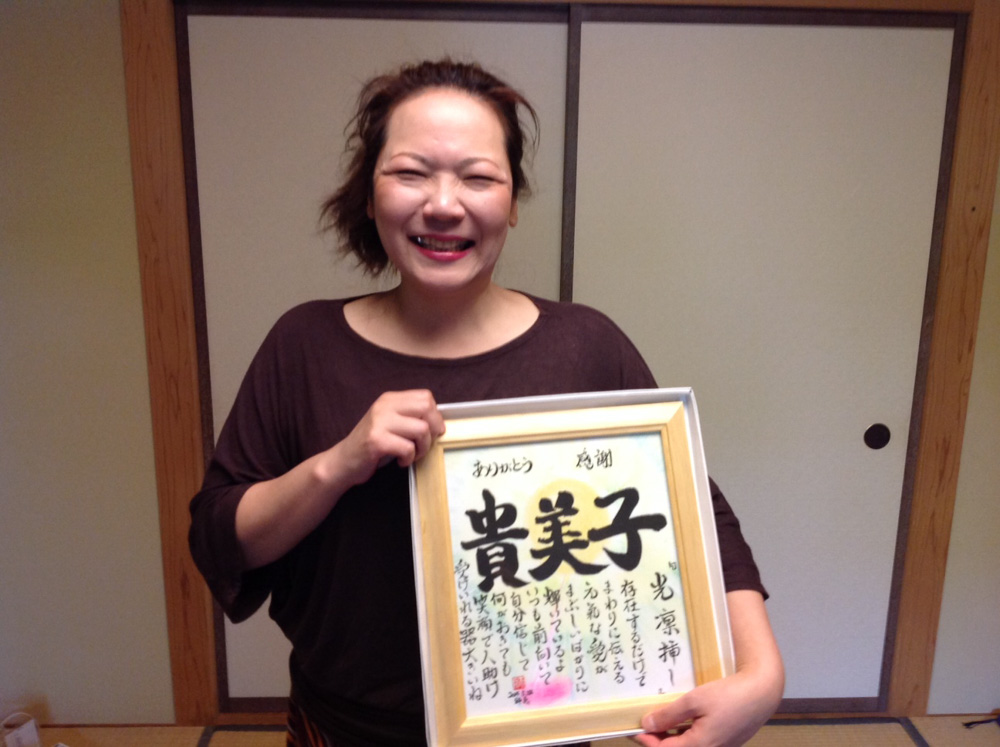 ありがとう 感謝
貴美子
「光凛挿し」
存在するだけで
まわりに伝える
元氣な姿が
まぶしいばかりに
輝いているよ
いつも前向いて
自分信じて
何がおきても
笑顔で人助け
受けいれる器大きいね